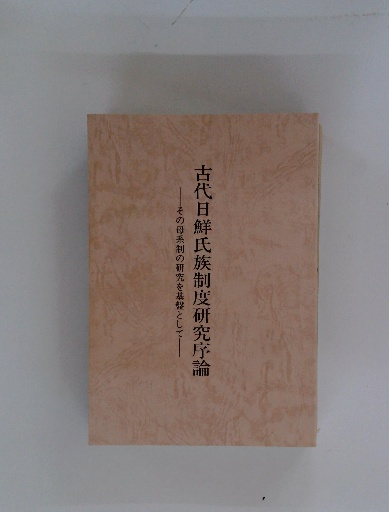 古代日鮮氏族制度研究序論
――その母系制の研究を基盤として――